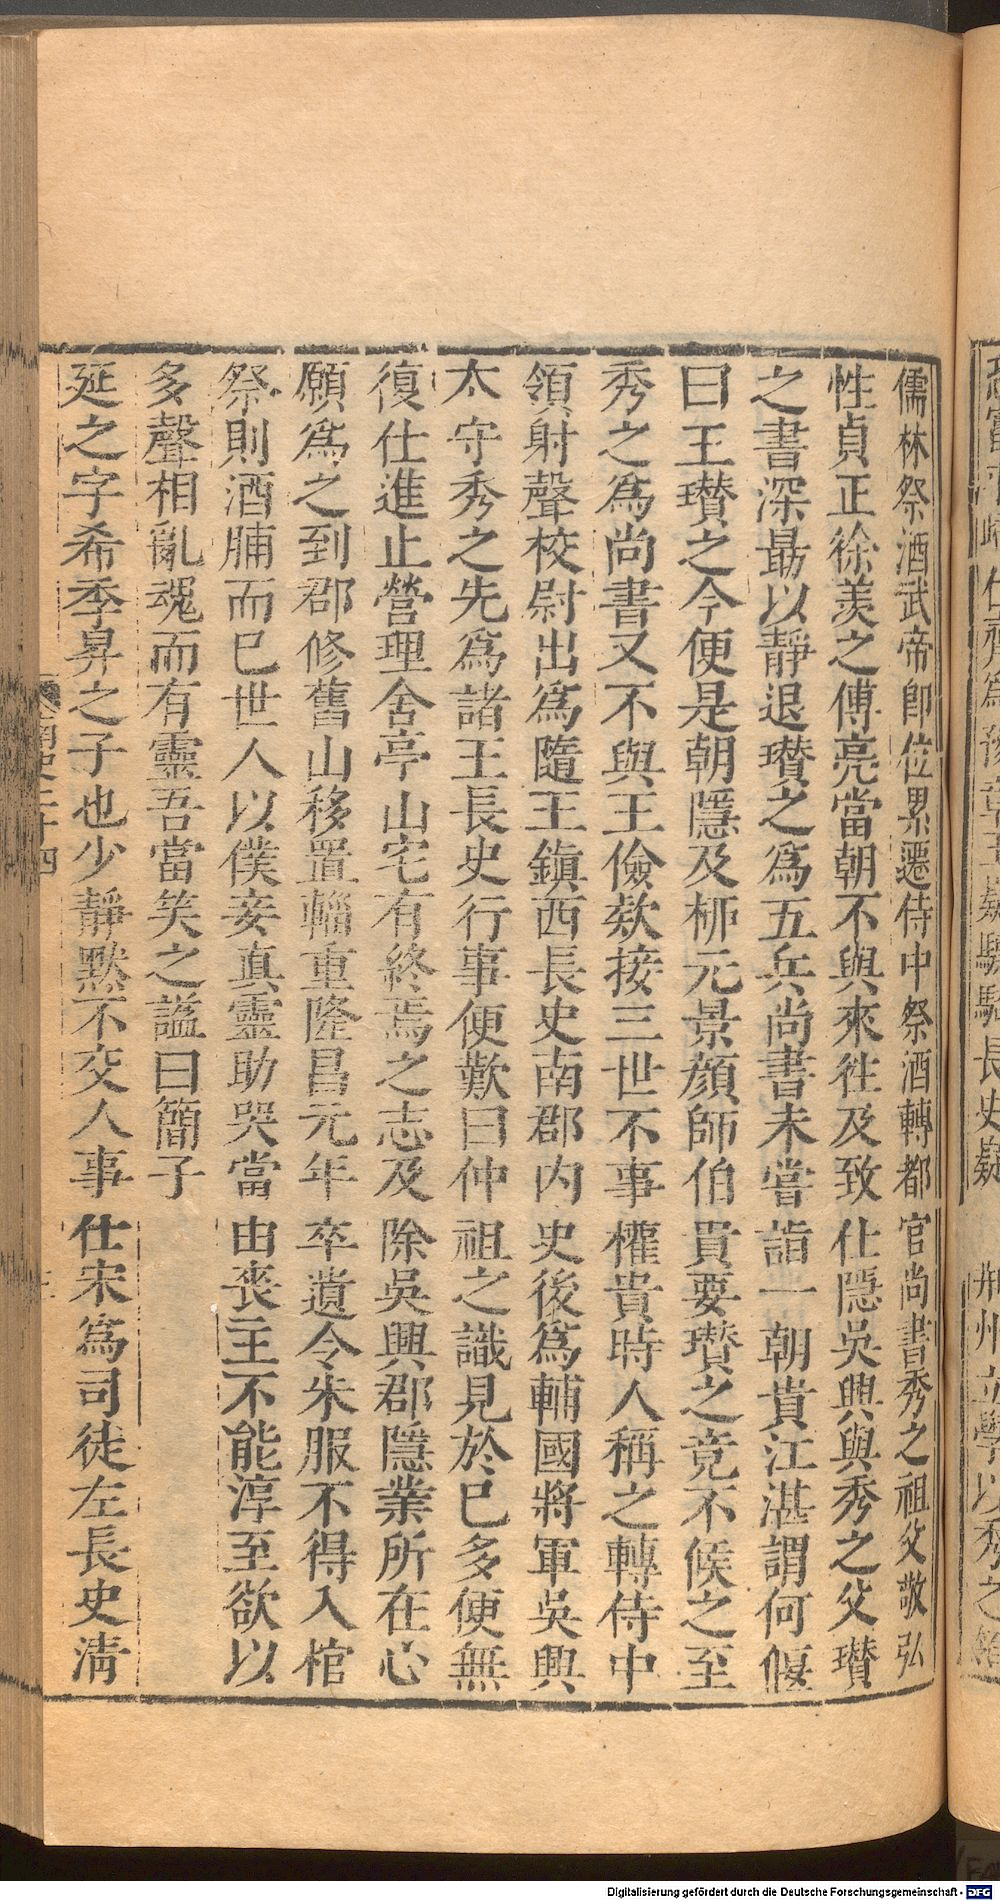 儒林祭酒武帝卽位累遷侍中祭酒轉都官尚書秀之祖父敬弘
性貞正徐羨之傅亮當朝不與來徃及致仕隱吳興與秀之父瓚
之書深勗以靜退瓚之爲五兵尚書未嘗詣一朝貴江湛謂何偃
曰王瓚之今便是朝隱及栁元景顔師伯貴要瓚之竟不候之至
秀之爲尚書又不與王儉欵接三世不事權貴時人稱之轉侍中
領射聲校尉出爲隨王鎮西長史南郡内史後爲輔國將軍吳興
太守秀之先爲諸王長史行事便歎曰仲祖之識見於巳多便無
復仕進止營理舍亭山宅有終焉之志及除吳興郡隱業所在心
願爲之到郡修舊山移置輜重隆昌元年卒遺令朱服不得入棺
祭則酒脯而巳世人以僕妾真靈助哭當由喪主不能淳至欲以
多聲相亂魂而有靈吾當笑之謚曰簡子
延之字希季昇之子也少靜黙不交人事仕宋爲司徒左長史淸
南史二十四
長史
荆州立學以秀之
Digitalisierung gefördert durch die Deutsche Forschungsgemeinschaft - DFG